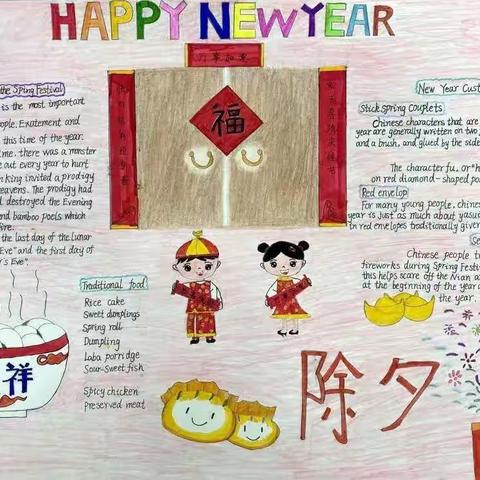 HAPPY NEW YEAR
万事如意
福
the Spring Festival
is the most important
ople. Exatement and
this time of the year.
me. there was a monster
e out every year to hurt
n king invited a prodigy
eavens. The prodigy had
d destroyed the Evening
nd bamboo poels which
fire.
the last day of the lunar
Eve" and the first day of
r's Eve".
New Year Cust
Stick Spring Couplets
Chinese characters that are
year are generally written on two
and a brush, and glued by the side
The character fu, or "h
on red diamond-shaped po
Red envelop
For many young people, chine
year is just as much about yasui
in red envelopes traditionally giver
Se
Chinese people t
fireworks during Spring Festiva
this helps scare off the Nian a
at the beginning of the year a
the year.
Traditional food
Rice cake
Sweet dumplings
Spring roll
Dumpling
Laba porridge
Sour-Sweet fish
Spicy chicken
Preserved meat
祥
除夕